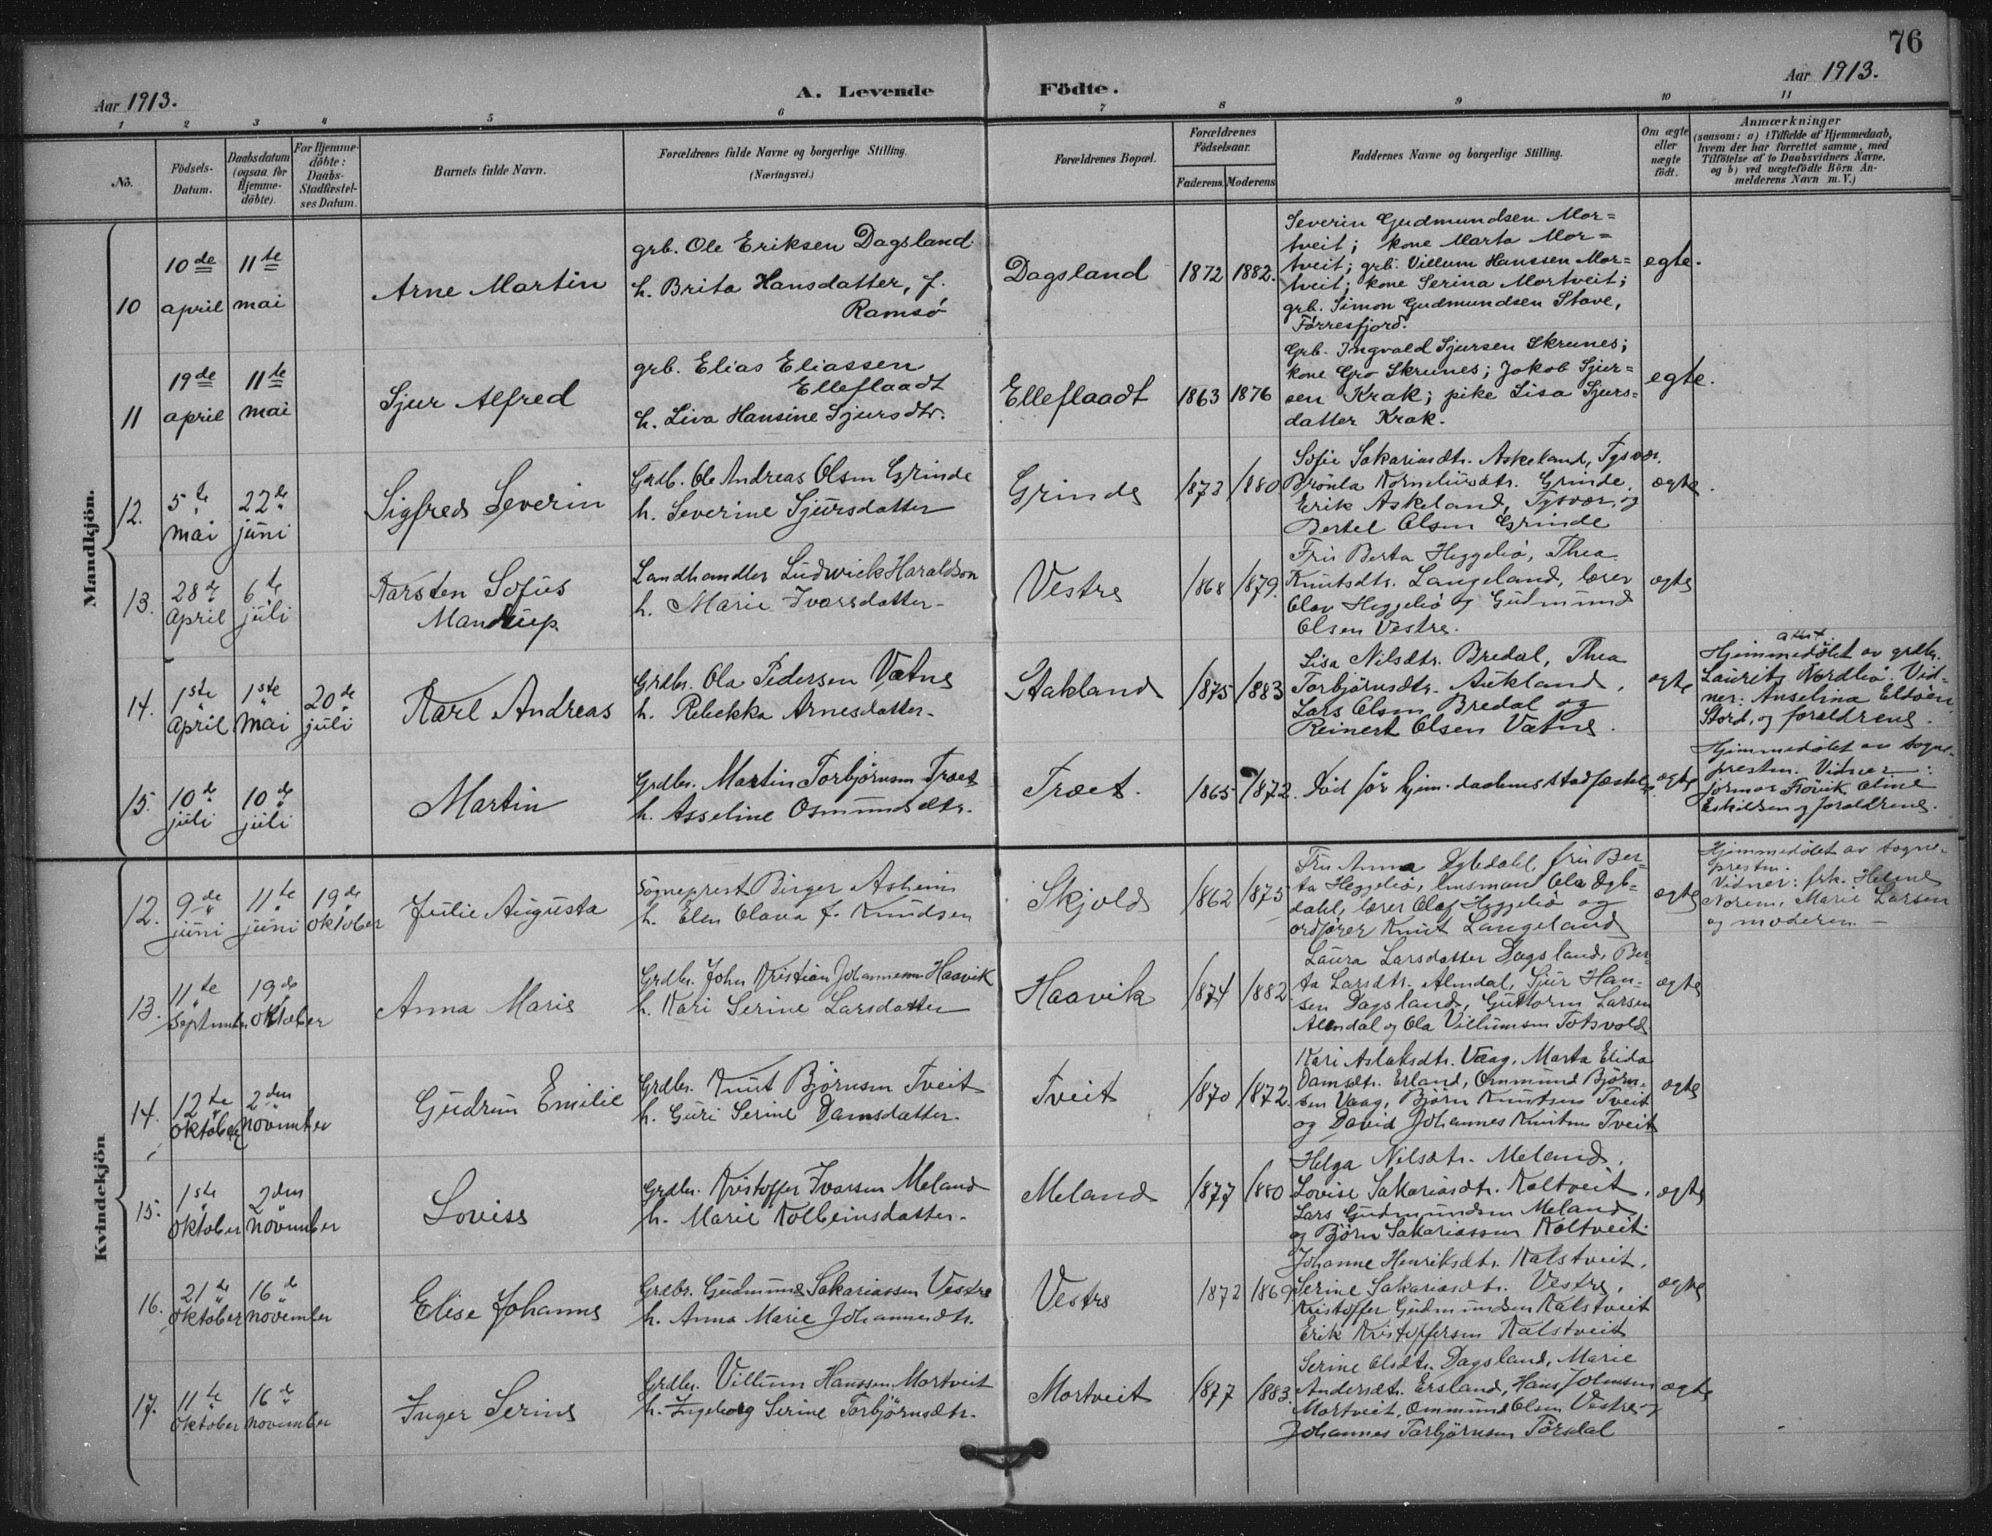 76
Aar 1913.
A. Levende
Födte.
Aar 1913.
1 2 3 4 5 6 7 8 9 10 11
No.
Födsels-
Datum.
Daabsdatum
(ogsaa for
Hjemme-
döbte).
For Hjemme-
döbte:
Daabs-
Stadfæstel-
ses Datum.
Barnets fulde Navn.
Forældrenes fulde Navne og borgerlige Stilling.
(Næringsvei.)
Forældrenes Bopæl.
Forældrenes
Födselsaar.
Faderens. Moderens
Faddernes Navne og borgerlige Stilling.
Om ægte
eller
uægte
födt.
Anmærkninger
(saasom: a) i Tilfælde af Hjemmedaab,
hvem der har forrettet samme, med
Tilföielse af to Daabsvidners Navne,
og b) ved uægtefödte Börn An-
melderens Navn m. V.)
Mandkjön.
10
10de
april
11te
mai
Arne Martin
grb. Ole Eriksen Dagsland
h. Brita Hansdatter, f.
Ramsö
Dagsland
1872 1882.
Severin Gudmundsen Mor=
tveit; kone Marta Mor=
tveit; grb. Villum Hanssen Mor=
tveit; kone Serina Mortveit;
grb. Simon Gudmundsen Stave,
Førresfjord.
egte.
11
19de
april
11te
mai
Sjur Alfred
grb. Elias Eliassen
Elleflaadt
h. Liva Hansine Sjursdtr.
Elleflaadt
1863 1876
Grb. Ingvald Sjursen Skrunes;
kone Gro Skrunes; Jakob Sjur=
sen Krak; pike Lisa Sjurs-
datter Krak.
egte.
12.
5te
mai
22de
juni
Sigfred Severin
Grdb. Ole Andreas Olsen Grinde
h. Severine Sjursdatter
Grinde
1873 1880
Sofie Sakariasdtr. Askeland, Tysvær,
Korneliusdtr. Grinde,
Erik Askeland, Tysvær, og
Bertel Olsen Grinde
ægte.
13.
28de
april
6te
juli
Karsten Sofus
Mandrup
Landhandler Ludwick Haraldson
h. Marie Ivarsdatter-
Vestre
1868 1879.
Fru Berta Heggelid, Thea
Knutsdtr. Langeland, lærer
Olav Heggelid og Gudmund
Olsen Vestre.
ægte
14.
1ste
april
1ste
mai
20de
juli
Karl Andreas
Grdbr. Ola Pedersen Vatne
h. Rebekka Arnesdatter-
Stakland
1875 1883
Lisa Nilsdtr. Bredal, Thea
Torbjørnsdtr. Aukland,
Lars Olsen Bredal og
Reinert Olsen Vatne.
ægte
Hjemmedøbt av grdbr.
Laurits Nordlid. Vid-
ner: Anselina Eldøen,
Stord, og forældrene.
15.
10de
juli
10de
juli
Martin
Grdbr. Martin Torbjørnsen Træet
h. Asseline Osmundsdtr.
Træet.
1865 1872.
Død før hjem. daabens stadfæstelse.
ægte
Hjemmedøbt av sogne-
presten. Vidner:
jormor Førvik, Oline
Eskildsen og forældrene.
Kvindekjön
12.
9de
juni
11te
juni
19de
oktober
Julie Augusta
Sogneprest Birger Asheim
h. Elen Olava f. Knudsen
Skjold
1862 1875
Fru Anna Dybdahl, fru Ber-
ta Heggelid, lensmand Ola Dyb-
dahl, lærer Olaf Heggelid og
ordfører Knut Langeland
ægte
Hjemmedøbt av sogne-
presten.
Vidner: frk. Helene
Norem, Marie Larsen
og moderen.-
13.
11te
September
19de
oktober
Anna Marie
Grdbr. John Kristian Johannessen Haavik
h. Kari Serine Larsdatter
Haavik
1874 1882
Laura Larsdatter Dagsland, Ber-
ta Larsdtr. Alendal, Sjur Han-
sen Dagsland, Guttorm Larsen
Alendal og Ola Villumsen Totsvold
ægte
14.
12te
oktober
2den
november
Gudrun Emilie
Grdbr. Knut Bjørnsen Tveit
h. Guri Serine Damsdatter-
Tveit
1870 1872.
Kari Aslaksdtr. Vaag, Marta Elida
Damsdtr. Erland, Ommund Bjørn-
sen Vaag, Bjørn Knutsen Tveit
og David Johannes Knutsen Tveit
ægte
15.
1ste
oktober
2den
november
Lovise
Grdbr. Kristoffer Ivarsen Meland
h. Marie Kolbeinsdatter-
Meland
1877 1880
Helga Nilsdtr. Meland,
Lovise Sakariasdtr. Koltveit,
Lars Gudmundsen Meland
og Bjørn Sakariassen Koltveit.
ægte
16.
21de
oktober
16de
november
Elise Johanne
Grdbr. Gudmund Sakariassen Vestre
h. Anna Marie Johannesdtr.
Vestre
1872 1869
Johanne Henriksdtr. Kalstveit,
Serine Sakariasdtr. Vestre,
Kristoffer Gudmundsen Kalstveit
Erik Kristoffersen Kalstveit
ægte
17.
11te
oktober
16de
november
Inger Serine
Grdbr. Villum Hanssen Mortveit
h. Ingeborg Serine Torbjørnsdtr.
Mortveit
1877 1883.
Serine Olsdtr. Dagsland, Marie
Andersdtr. Ersland, Hans Johnsen
Mortveit, Ommund Olsen Vestre og
Johannes Torbjørnsen Førsdal
ægte